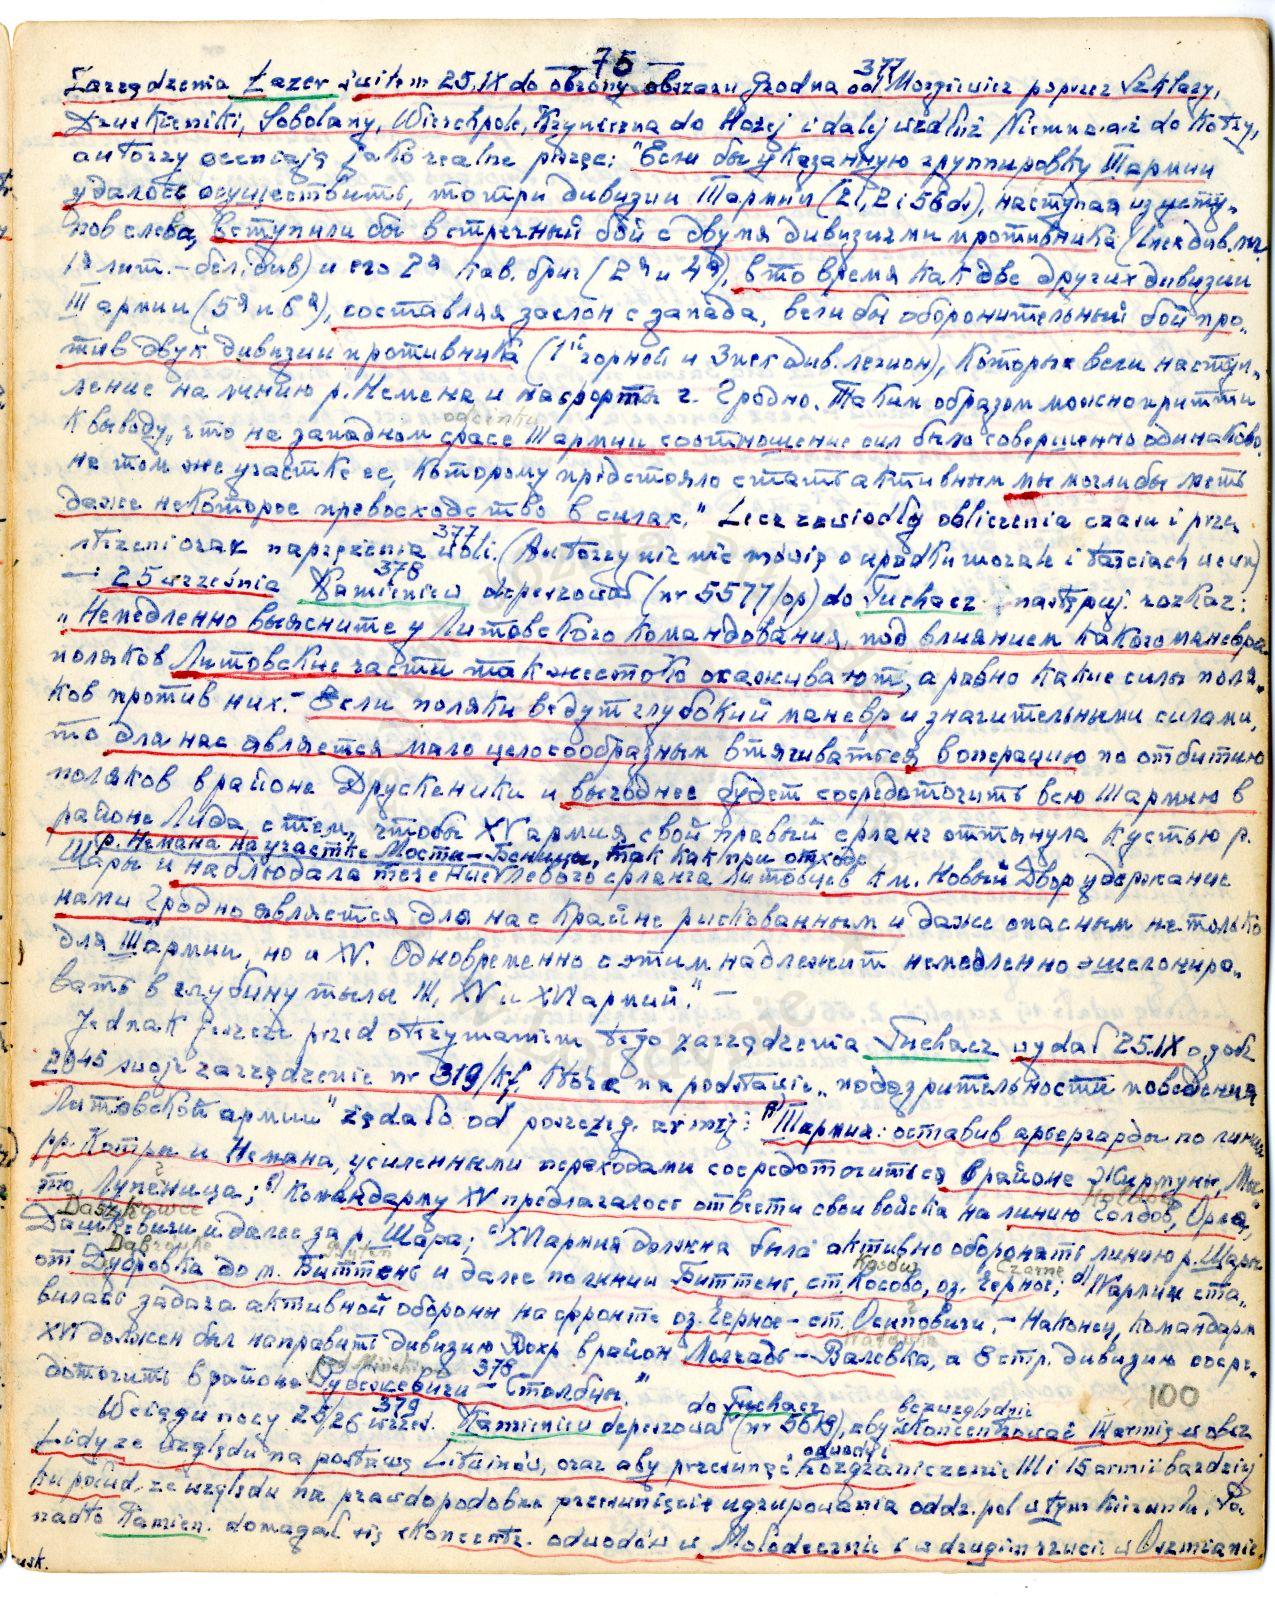 — 75 —
377
Zarządzenia Łazer. świtem 25.IX do obrony obszaru Grodna od Morgiewicz poprzez Szklary,
Druskieniki, Sobolany, Wierchpole, Kryniczna do Hożej i dalej wzdłuż Niemna aż do Kotry,
autorzy oceniają jako realne pisząc: "Если бы указанную группировку III армии
удалось осуществить, то три дивизии III армии (21, 2 i 56 d.), наступая из уступ-
пов слева, вступили бы в встречный бой с двумя дивизиями противника (
1я лит.-бел. див) и его 2я кав. бриг (2я и 4я), в то время как две других дивизии
III армии (5я и 6я), составляя заслон с запада, вели бы оборонительный бой про-
тив двух дивизии противника (1й горной и 3 пех див. легион), которые вели наступ-
ление на линию р. Немена и на форты г. Гродно. Таким образом можно притти
odcinku
к выводу, что на западном фасе III армии соотношение сил было совершенно одинаково.
на том же участке ее, которому предстояло стать активным мы могли бы иметь
даже некоторое превосходство в силах." Lecz zawiodły obliczenia czasu i prze-
377
strzeni oraz napięcia woli. (Autorzy nic nie mówią o upadku morale i tarciach wewn)
378
— 25 września Kamieniew depeszował (nr 5577/op) do Tuchacz. następuj. rozkaz:
"Немедленно выясните у Литовского командования, под влиянием какого маневра
поляков Литовские части так жестоко охаживают, а равно какие силы поля-
ков против них.— Если поляки ведут глубокий маневр и значительными силами,
то для нас является мало целесообразным втягиваться в операцию по отбитию
поляков в районе Друскеники и выгоднее будет сосредоточить всю III армию в
районе Лида, с тем, чтобы XV армия свой правый фланг оттянула к устью р.
р. Немана на участке Мосты – Беницы, так как при отходе
Щары и наблюдала течение левого фланга Литовцев к м. Новый Двор удержание
нами Гродно является для нас крайне рискованным и даже опасным не только
для III армии, но и XV. Одновременно с этим надлежит немедленно эшелониро-
вать в глубину тылы III, XV и XVI армий." —
Jednak jeszcze przed otrzymaniem tego zarządzenia Tuchacz. wydał 25.IX o godz
20⁴⁵ swoje zarządzenie nr 319/kf, które na podstawie „подозрительности поведения
Литовской армии" żądało od poszczeg. armij: a) III армия: оставив арьергарды по линии
рр. Котры и Немана, усиленными переходами сосредоточиться в районе Жирмуны,
то Лупеница; b) Командарму XV предлагалось отвести свои войска на линию Голдов, Орля,
Daszkowce
Дашкевичи и далее за р. Щара; c) XVI армия должна была активно оборонять линию р. Щары
Dąbrówka Bytеń Kosów Czarne
от Дубровка до м. Биттень и далее по линии Биттень, ст. Косово, оз. Черное; d) IV армии ста-
вилась задача активной обороны на фронте оз. Черное – ст. Осиповичи.— Наконец, командарм
XVI должен был направить дивизию Вохр в район Молчадь – Валевка, а 8 стр. дивизию сосре-
378
доточить в районе – Столбцы."
100
379 do Tuchacz. bezwzględnie
W ciągu nocy 25/26 wrześ. Kamieniew depeszował (nr 5619), aby skoncentrować III armię w obsz.
odwody i
Lidy ze względu na postawę Litwinów, oraz aby przesunąć rozgraniczenie III i 15 armii bardziej
ku połud. ze względu na prawdopodobne przesunięcie ugrupowania oddz. pol w tym kierunku. Po-
nadto Kamien. domagał się skoncentr. odwodów w Mołodecznie i w drugim rzucie w Oszmianie.